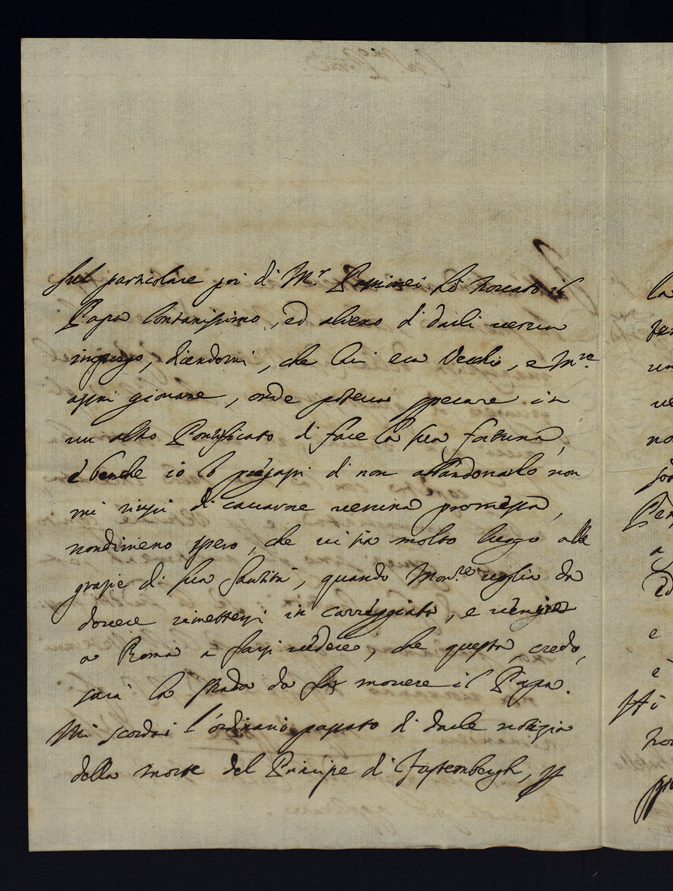 Sul particolare poi di M.r Passionei hò trovato il
Papa lontanissimo, ed alieno di darli verun
impiego, dicendomi, che lui era Vecchio, e M.re
assai giovane, onde poteva sperare in
un altro Pontificato di fare la sua fortuna,
e benche io lo pregassi di non abbandonarlo non
mi riuscì di cavarne veruna promessa,
nondimeno spero, che vi sia molto luogo alle
grazie di Sua Santità, quando Mon.re voglia da
dovere rimettersi in carreggiata, e venire
a Roma a farsi vedere, che questa, credo,
sarà la strada da far movere il Papa.
Mi scordai l'ordinario passato di darle notizia
della morte del Principe di Fustembergh,